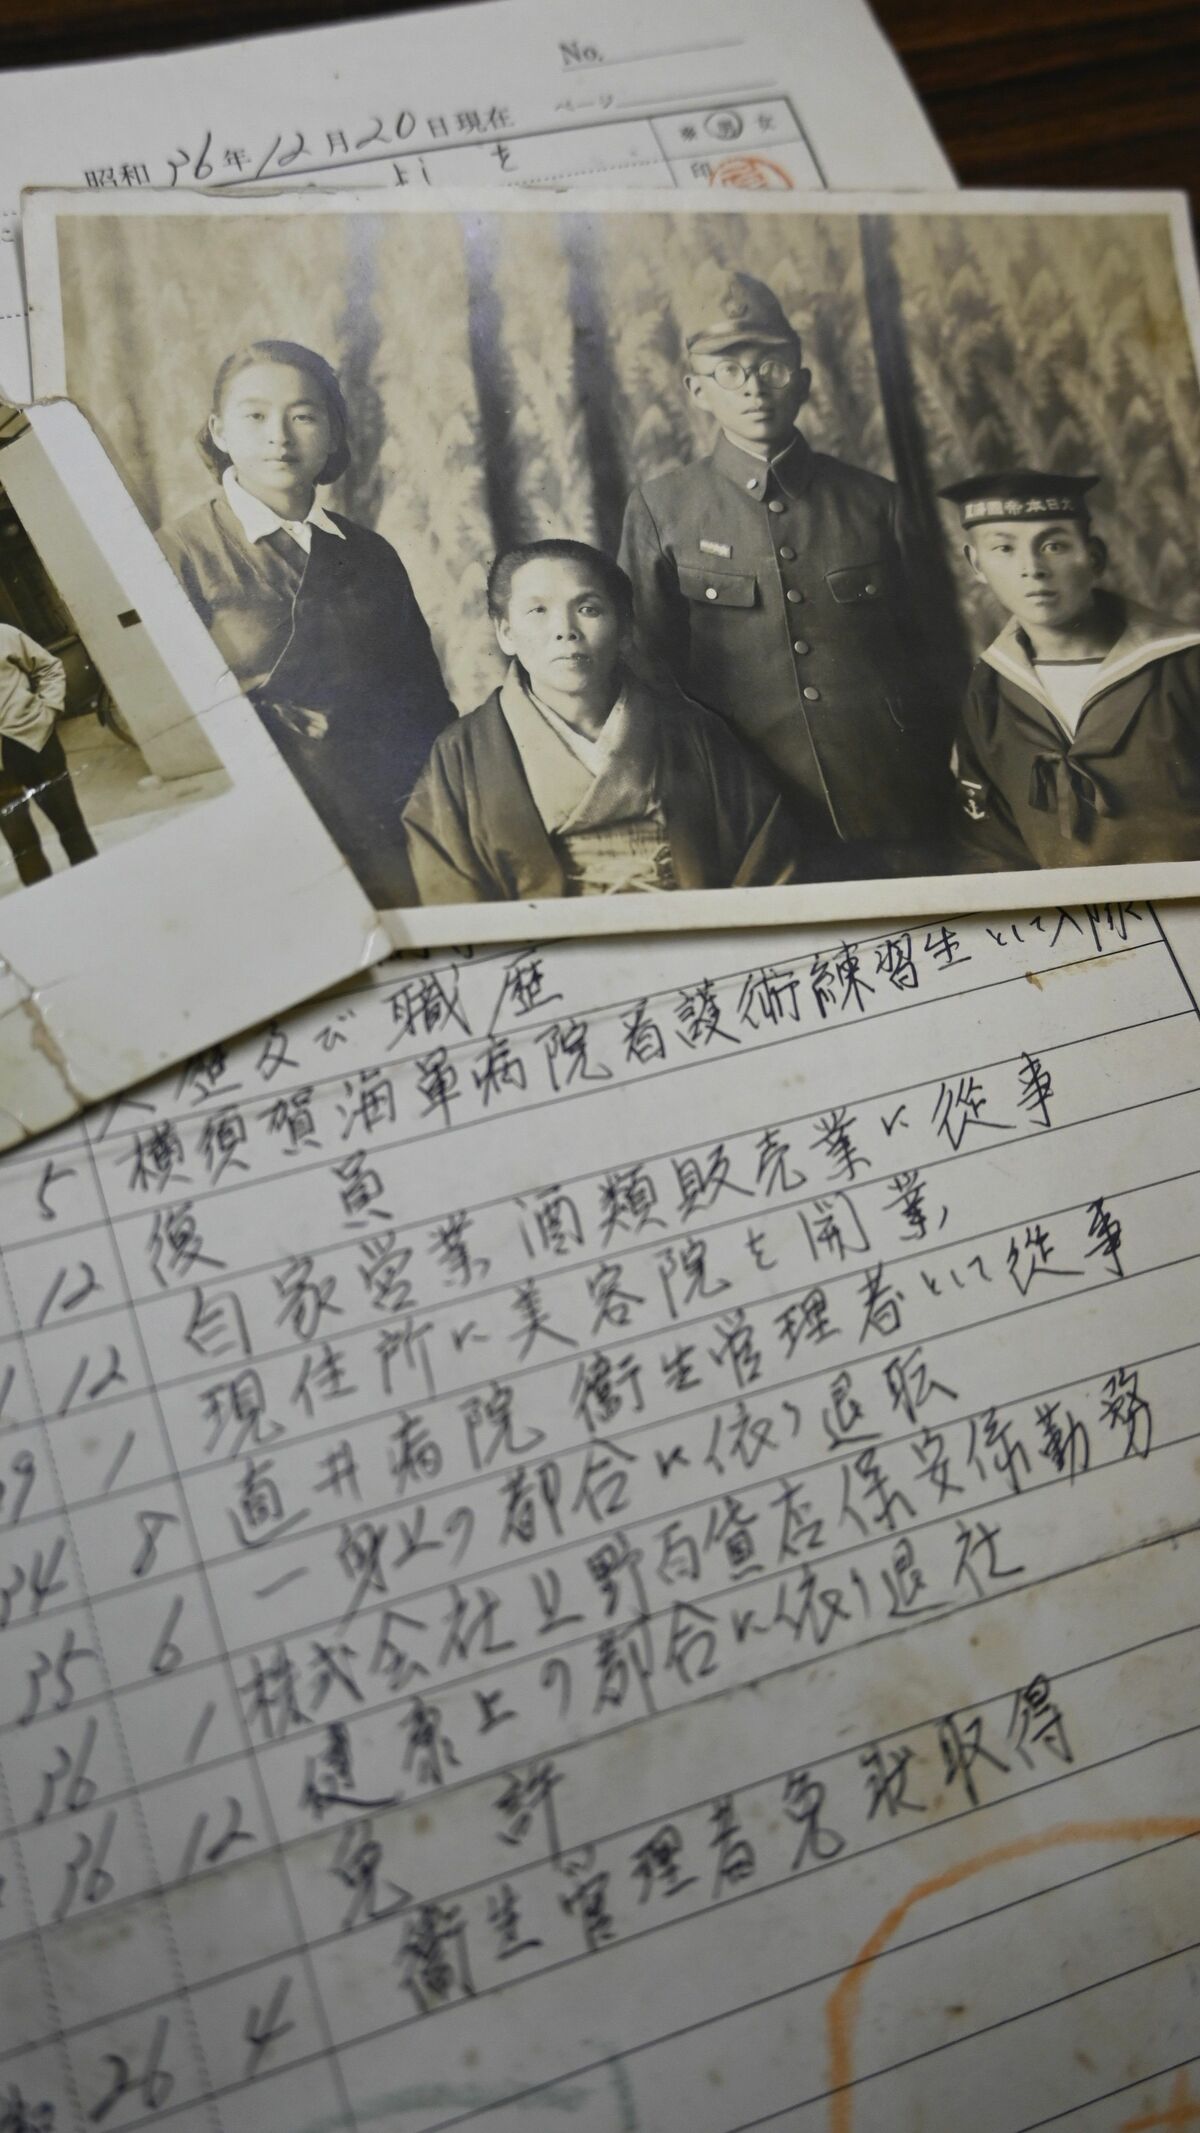 No.
ページ
昭和 36年 12月 20日現在
※ 男 女
よし を
印
大日本帝國海軍
入 歴及び職歴
横須賀海軍病院看護術練習生として入隊
5 復 員
12 自家営業酒類販売業に従事
12 現住所に美容院を開業
29 1 直井病院衛生管理者として従事
34 8 一身上の都合に依り退職
35 6 株式会社上野百貨店保安係勤務
36 1 健康上の都合に依り退社
36 12 免 許
衛生管理者免状取得
和 26 4